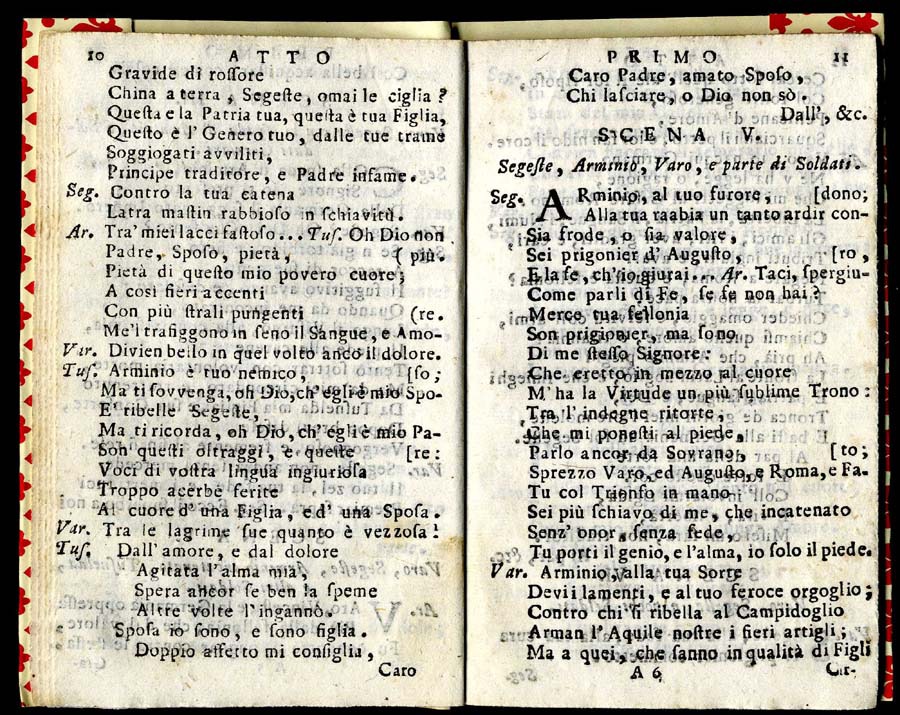 10 ATTO
Gravide di roſſore
China a terra, Segeſte, omai le ciglia?
Queſta e la Patria tua, queſta è tua Figlia,
Queſto è l' Genero tuo, dalle tue trame
Soggiogati avviliti,
Principe traditore, e Padre infame.
Seg. Contro la tua catena
Latra maſtin rabbioſo in ſchiavitù.
Ar. Tra' miei lacci faſtoſo... Tuſ. Oh Dio non
Padre, Spoſo, pietà, ( più.
Pietà di queſto mio povero cuore;
A così fieri accenti
Con più ſtrali pungenti (re.
Me'l trafiggono in ſeno il Sangue, e Amo-
Var. Divien bello in quel volto anco il dolore.
Tuſ. Arminio è tuo nemico, [ſo;
Ma ti ſovvenga, oh Dio, ch' egli è mio Spo-
E' ribelle Segeſte,
Ma ti ricorda, oh Dio, ch' egli è mio Pa-
Son queſti oltraggi, e queſte [re:
Voci di voſtra lingua ingiurioſa
Troppo acerbe ferite
Al cuore d' una Figlia, e d' una Spoſa.
Var. Tra le lagrime ſue quanto è vezzoſa!
Tuſ. Dall' amore, e dal dolore
Agitata l'alma mia,
Spera ancor ſe ben la ſpeme
Altre volte l'ingannò.
Spoſa io ſono, e ſono figlia.
Doppio affetto mi conſiglia,
Caro
PRIMO 11
Caro Padre, amato Spoſo,
Chi laſciare, o Dio non sò.
Dall', &c.
SCENA V.
Segeſte, Arminio, Varo, e parte di Soldati.
Seg. ARminio, al tuo furore, [dono;
Alla tua raabia un tanto ardir con-
Sia frode, o ſia valore,
Sei prigionier d' Auguſto, [ro,
E la fe, ch'io giurai... Ar. Taci, ſpergiu-
Come parli di Fe, ſe fe non hai?
Merce tua fellonia
Son prigionier, ma ſono
Di me ſteſſo Signore:
Che eretto in mezzo al cuore
M' ha la Virtude un più ſublime Trono:
Tra l' indegne ritorte,
Che mi poneſti al piede,
Parlo ancor da Sovrano, [to;
Sprezzo Varo, ed Auguſto, e Roma, e Fa-
Tu col Trionfo in mano
Sei più ſchiavo di me, che incatenato
Senz' onor, ſenza fede,
Tu porti il genio, e l'alma, io ſolo il piede.
Var. Arminio, alla tua Sorte
Devi i lamenti, e al tuo feroce orgoglio;
Contro chi ſi ribella al Campidoglio
Arman l' Aquile noſtre i fieri artigli;
Ma a quei, che ſanno in qualità di Figli
A 6